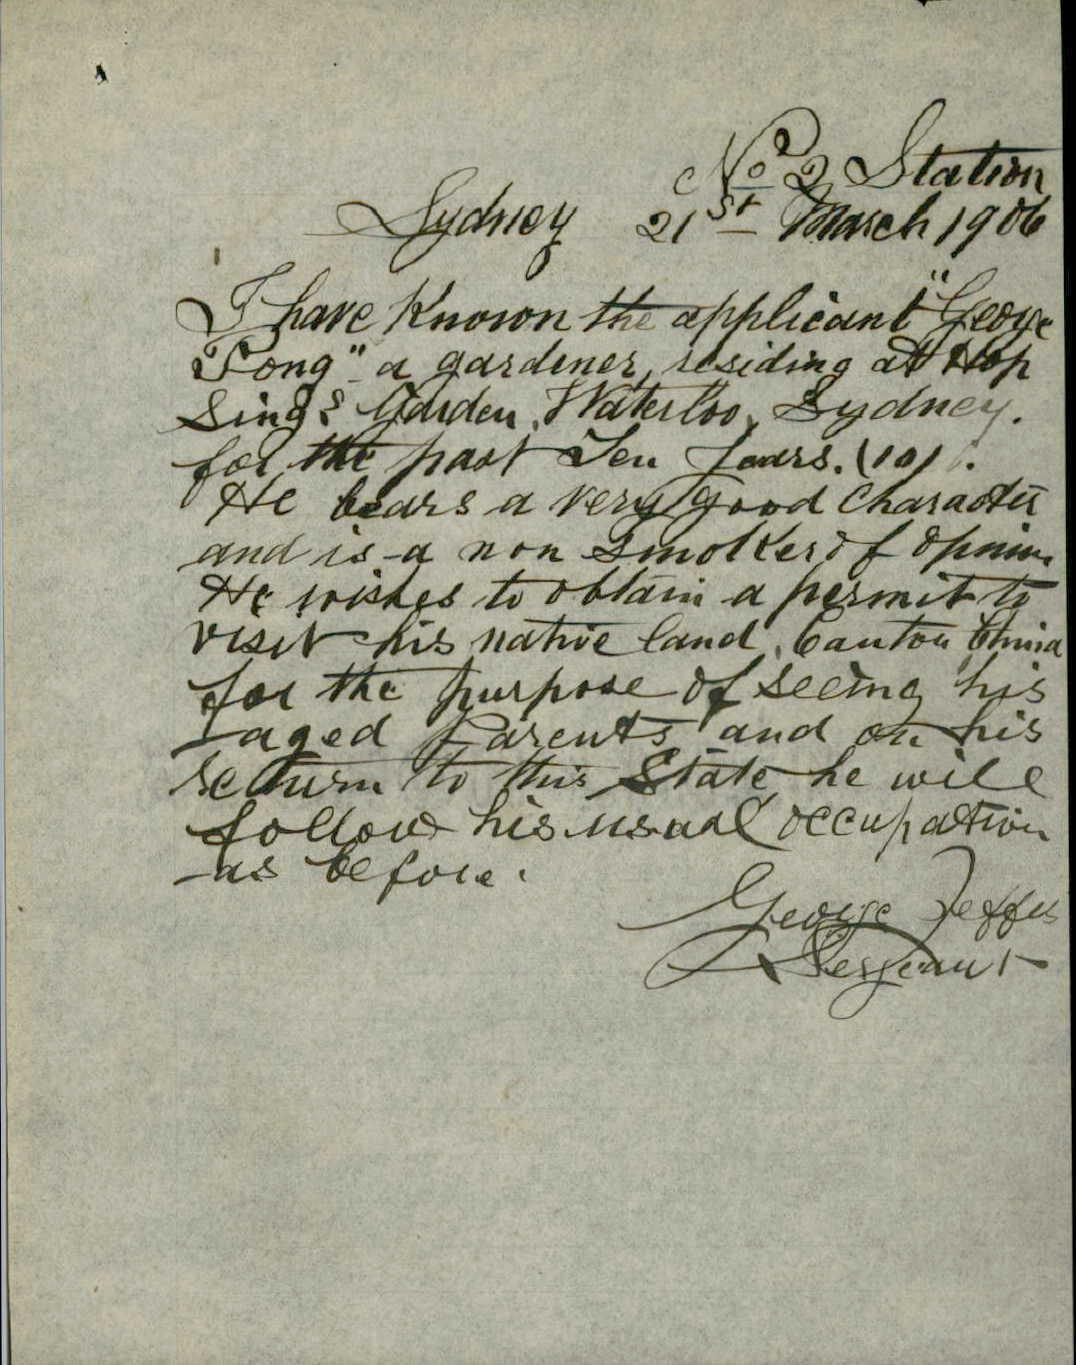 No 2 Station
Sydney 21st March 1906
I have Known the applicant "George
Pong" a gardener, residing at Hop
Sings Garden, Waterloo, Sydney.
for the past Ten years. (10).
He bears a very good Character
and is a non Smoker of Opium
He wishes to obtain a permit to
visit his native land, Canton China
for the purpose of seeing his
aged Parents and on his
return to this State he will
follow his usual occupation
as before.
George Jeffes
Sergeant